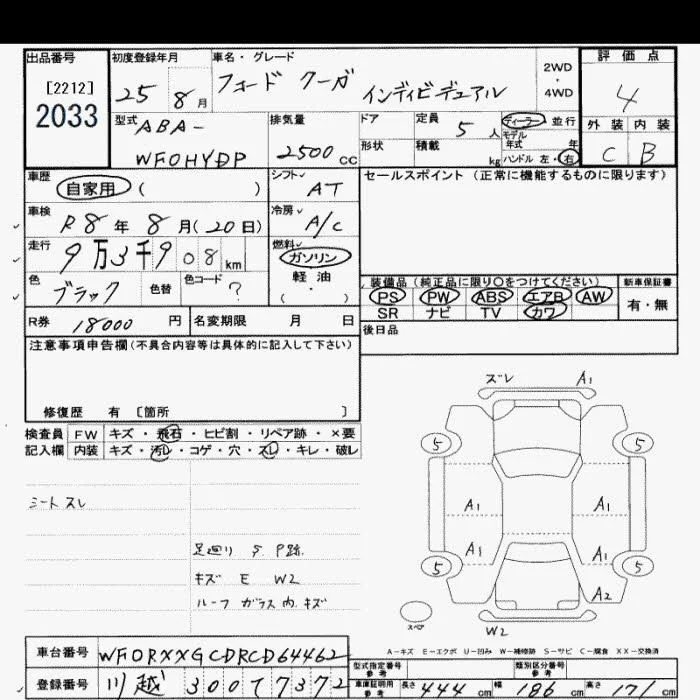 出品番号 初度登録年月 車名・グレード 評価点
[2212] 25 8月 フォード クーガ インディビデュアル 2WD・4WD 4
2033
型式 ABA- 排気量 ドア 定員 5人 ディーラー 並行 外装 内装
WF0HYDP 2500cc 形状 積載 kg モデル年式 年 ハンドル 左・右 C B
車歴 自家用 ( ) シフト AT セールスポイント (正常に機能するものに限ります)
車検 R8年 8月(20日) 冷房 A/C
走行 9万3千908km 燃料 ガソリン
軽油
( ・ )
色 ブラック 色替 色コード ? 装備品(純正品に限り○をつけてください) 新車保証書
PS PW ABS エアB AW 有・無
SR ナビ TV カワ
R券 18000円 名変期限 月 日 後日品
注意事項申告欄(不具合内容等は具体的に記入して下さい)
修復歴 有 [箇所 ]
検査員 FW キズ・飛石・ヒビ割・リペア跡・×要
記入欄 内装 キズ・汚レ・コゲ・穴・スレ・キレ・破レ
シートスレ
足廻り S P跡.
キズ E W2
ルーフ ガラス内.キズ
ズレ A1
5 5
A1 A1
A1 A1
5 5
A2
スペア
W2
A-キズ E-エクボ U-凹み W-補修跡 S-サビ C-腐食 XX-交換済
車台番号 WF0RXXGCDRCD64462 型式指定番号 参考 類別区分番号 参考
登録番号 川越 300 7372 車庫証明用 参考 長さ 444cm 幅 186cm 高さ 171cm